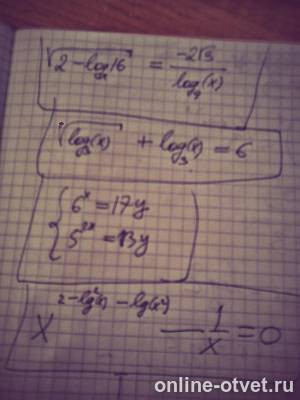 √(2 - log_x 16) = -2√3 / log_4(x)
√(log_3(x)) + log_3(x) = 6
{ 6^x = 17y
{ 5^(2x) = 13y
x^(2 - lg²(x) - lg(x²)) - 1/x = 0
online-otvet.ru